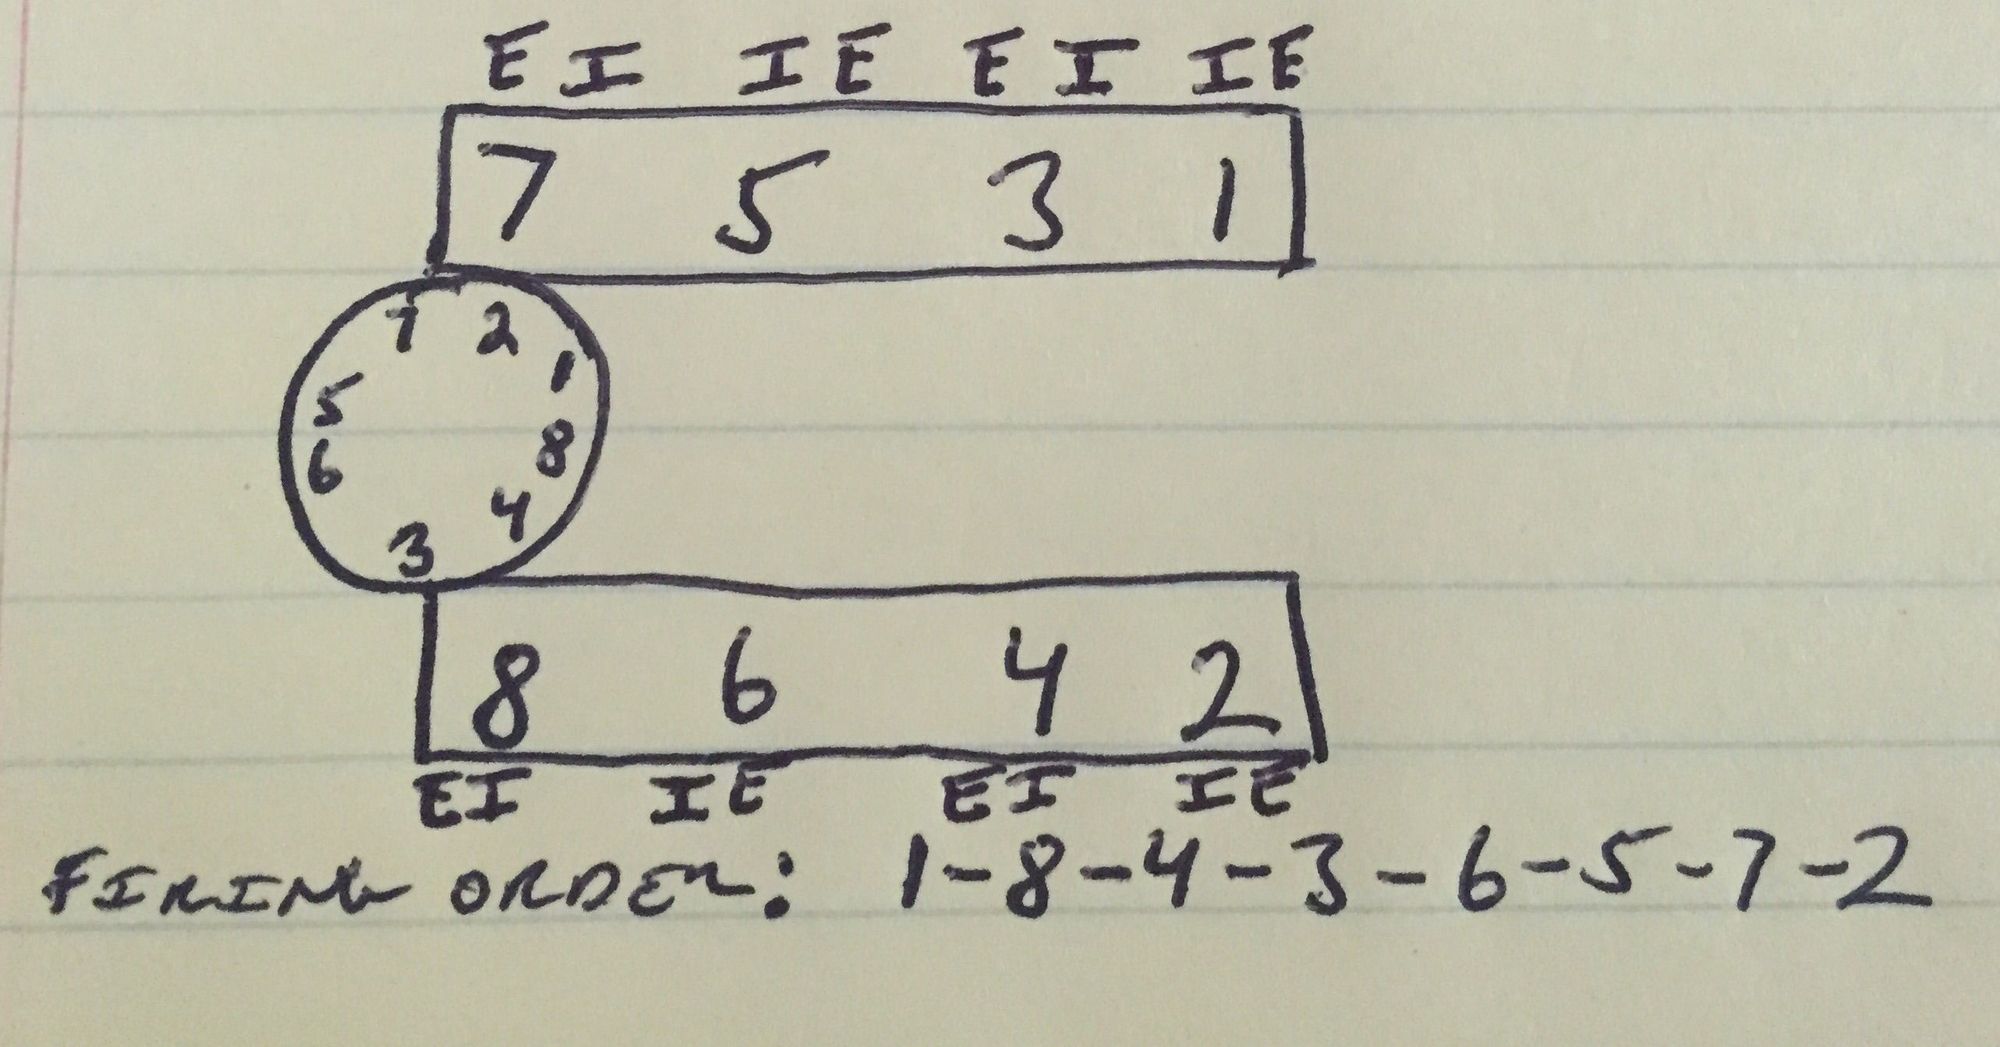 EI IE EI IE
7 5 3 1
7 2
1
5
8
6
4
3
8 6 4 2
EI IE EI IE
FIRING ORDER: 1-8-4-3-6-5-7-2